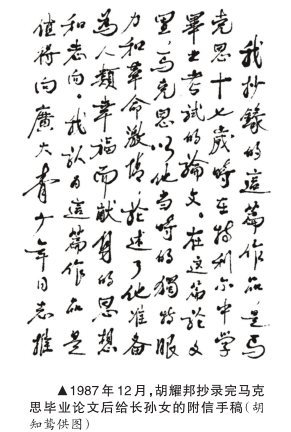 我抄錄的這篇作品,是马
克思十七歲時在特利尔中学
畢业考試的論文。在這篇論文
里,马克思以他当時的獨特眼
力和革命激情,論述了他准备
為人類幸福而献身的思想
和志向。我认为這篇作品是
值得向廣大青少年同志推
▲1987年12月,胡耀邦抄录完马克
思毕业论文后给长孙女的附信手稿(胡
知鸷供图)